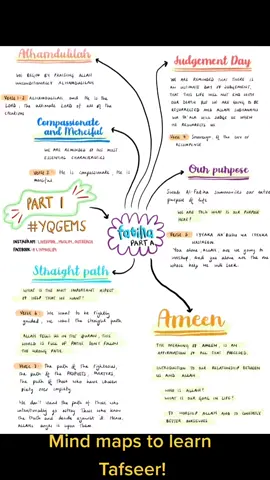 Alhamdulillah
WE BEGIN BY PRAISING ALLAH
UNCONDITIONALLY ALHAMDULILLAH.
Verse 1-2 Alhamdulillah and He is the
LORD, the ultimate Lord of all of the
creations
Compassionate
and Merciful
WE ARE REMINDED OF HIS MOST
ESSENTIAL CHARACTERISTICS
Verse 3 He is compassionate, He is
merciful
PART 1
#YQGEMS
INSTAGRAM:
FACEBOOK:
fatiha
PART A
Straight path
WHAT IS THE MOST IMPORTANT ASPECT
OF HELP THAT WE WANT?
Verse 6 We want to be rightly
guided, we want the straight path
ALLAH TELLS US IN THE QURAN, THIS
WORLD IS FULL OF PATHS DON'T FOLLOW
THE WRONG PATH
Verse 7 The path of the righteous,
the path of the PROPHETS, MARTYRS,
The path of those who have chosen
piety over iniquity
We don't want the path of those who
intentionally go astray, those who know
the truth and decide against it. Hence,
Allah's anger is upon them
Judgement Day
WE ARE REMINDED THAT THERE IS
AN ULTIMATE DAY OF JUDGEMENT,
THAT THIS LIFE WILL NOT END WITH
OUR DEATH BUT WE ARE GOING TO BE
RESURRECTED AND ALLAH SUBHANAHU
WA TA'ALA WILL JUDGE US WHEN
HE RESURRECTS US
Verse 4 Sovereign of the day of
RECOMPENSE
Our purpose
Surah Al Fatiha summarises our entire
purpose of life
WE ARE TOLD WHAT IS OUR PURPOSE
HERE?
Verse 5 IYYAKA NA'BUDU WA IYYAKA
NASTAEEN
You alone, Allah, are we going to
worship and you alone are the one
whose help we will seek
Ameen
THE MEANING OF AMEEN, IS AN
AFFIRMATION OF ALL THAT PRECEDED.
INTRODUCTION TO OUR RELATIONSHIP BETWEEN
US AND ALLAH
WHO IS ALLAH?
WHAT IS OUR GOAL IN LIFE?
TO WORSHIP ALLAH AND TO CONSTANTLY
BETTER OURSELVES
Mind maps to learn
Tafseer!